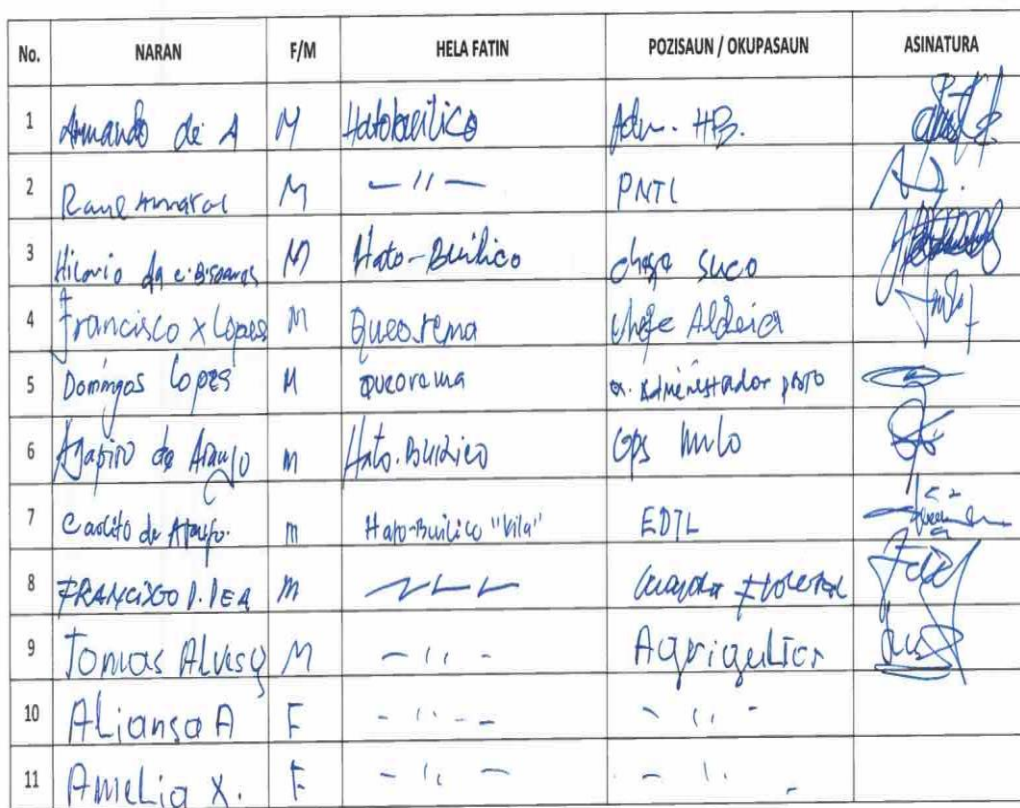 No. NARAN F/M HELA FATIN POZISAUN / OKUPASAUN ASINATURA
1 Armando de A M Hatobuilico Adm. HB.
2 Raul Amaral M — 11 — PNTL
3 Hilario da M Hato-Builico chefe suco
4 Francisco X Lopes M Queorema chefe Aldeia
5 Domingos Lopes M Queorema Administrador posto
6 Agapito de Araujo m Hato-Builico
7 Carlito de Araujo. m Hato-Builico "Vila" EDTL
8 FRANCISCO m Florestal
9 Tomas Alves M - 11 - Agrigultor
10 Aliansa A F - 11 - - - 11 -
11 Amelia X. F - 11 - - 11 -